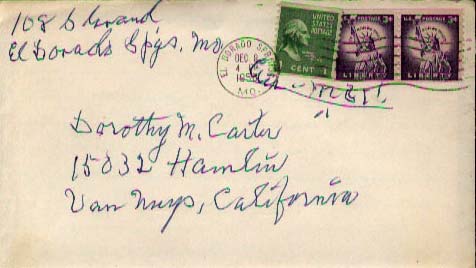 108 S Grand
El Dorado Spgs, Mo.
EL DORADO SPRINGS
DEC 8
4
195
MO.
UNITED STATES POSTAGE
1 CENT 1
U.S. POSTAGE 3¢
LIBERTY
U.S. POSTAGE 3¢
LIBERTY
Dorothy M. Carter
15832 Hamlin
Van Nuys, California